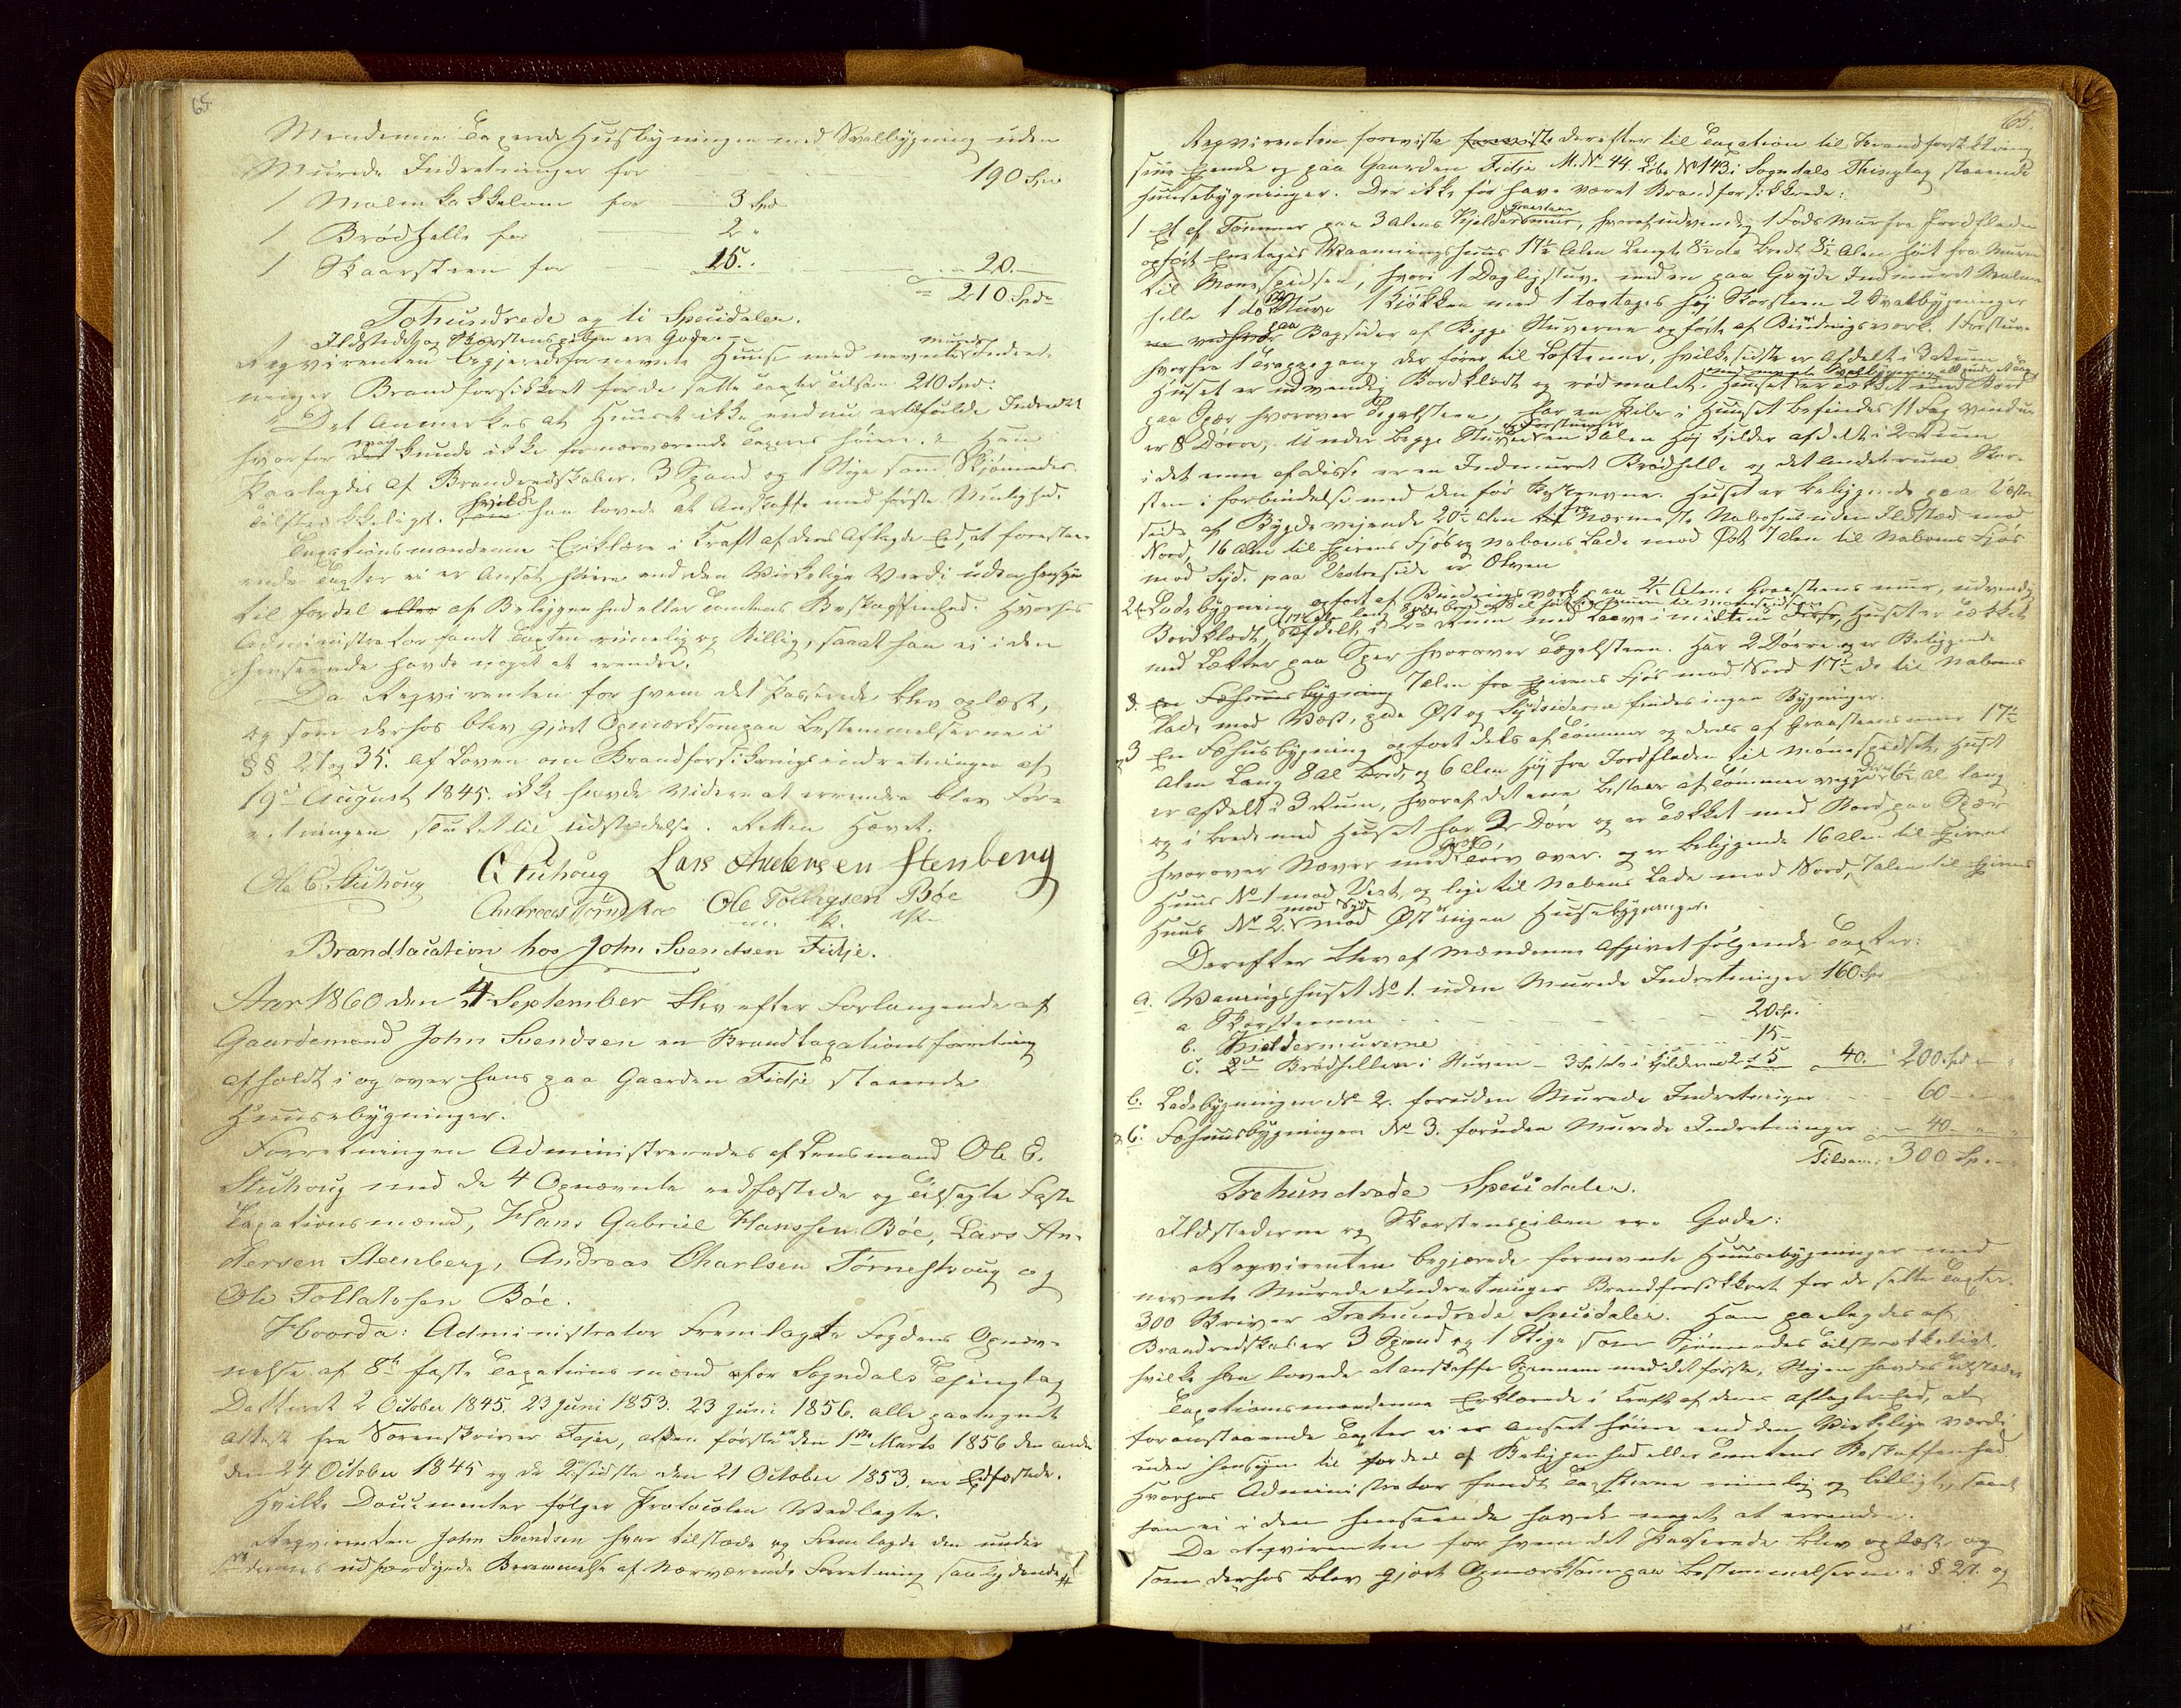 65.
Mændenne Taxerede Huusbyningen med Svalbygning uden
Murede Indretninger for 190 Spd
1 Malmkakkelovn for 3 Spd
1 Brødhelle for 2 "
1 Skaarsteen for 15. 20.
= 210 Spd
Tohundrede og ti Speciedaler.
Ildstedet og Skorstenspiben ere Gode.
Reqvirenten begjærede fornevnte Huuse med nevnte murede Indret-
ninger Brandforsikkret for de satte Taxter tilsam 210 Spd:
Det Anmerkes at Huuset ikke endnu er tilfulde Indredet
hvorfor det kunde ikke for nærværende Taxeres høiere. Han
Paalagdes af Brandredskaber. 3 Spand og 1 Stige som Skjønnedes
tilstrekkeligt. som hvilke han lovede at Anskaffe med første Muelighed.
Taxationsmændenne Erklære i Kraft af deres Aflagde Eed, at foresta-
ende Taxter ei er Ansat høiere end den Virkelige Verdi uden hensyn
til fordel eller af Beliggenhed eller Tomtens Beskaffenhed. Hvorhos
Administrator fandt Taxten rimelig og Billig, saaat han ei i den
henseende havde noget at erindre.
Da Reqvirenten for hvem det Passerede blev oplæst,
og som derhos blev gjort Opmærksom paa Bestemmelserne i
§§ 27 og 35. af Loven om Brandforsikrings indretningen af
19de August 1845. ikke havde Videre at erindre blev For-
retningen sluttet til udstædelse. Retten Hævet.
Ole C. Stuhoug C Stuhoug Lars Andersen Stenberg
Andreas Ole Tollagsen Bøe
Brandtaxation hos John Svendsen Fidje.
Aar 1860 den 4 September blev efter Forlangende af
Gaardemand John Svendsen en Brandtaxationsforretning
afholdt i og over hans paa Gaarden Fidje staaende
Huusebygninger.
Forretningen Administreredes af Lensmand Ole C.
Stuhoug med de 4 Opnævnte edfæstede og tilsagte Faste
Taxationsmænd, Hans Gabriel Hanssen Bøe, Lars An-
dersen Steenberg, Andreas Charlsen Tørneshoug og
Ole Tollafssen Bøe.
Hvorda: Administrator Fremlagte Fogdens Opnæv-
nelse af 8te faste Taxationsmænd for Sogndals Thinglag
Datteret 2 October 1845. 23 Juni 1853. 23 Juni 1856. alle paategnet
Attest fra Sorenskriver Fejer, at den første den 1ste Marts 1856 den anden
den 24 October 1845 og de 2 sidste den 21 October 1853. ere Edfæstede.
Hvilke Documenter følger Protocolen Vedlagte.
Reqvirenten John Svendsen hvar tilstæde og Fremlagde den under
udfærdigede Berammelse af Nærværende Forretning saalydende #
65.
Reqvirenten foreviste foreviste derefter til Taxation til Brandforsikkring
sine Ejende og paa Gaarden Fidje M. No 44. Løbe No 143 i Sogndals Thinglag staaende
huusebygninger. Der ikke før have været Brandforsikkrede:
1 Et af Tømmer paa 3 Alens Kjeldersmur Graasteen, hvoraf udvendig 1 Fods Mur fra Jordfladen
opført Eenetages Vaaningshuus 17½ Alen Lengt 8½ do Bredt 8½ Alen høit fra Muren
til Mønespidsen, hvori 1 Dagligstuve med en paa Gryde Indmuret Malm-
helle 1 do Stuve 1 Kjøkken med 1 toetages høj Skorsteen 2 Svalbygninger
paa Bagsider af Begge Stuverne opførte af Bindingsverk. 1 Forstuve
hvorfra 1 Trappegang der fører til Loftenne, hvilke sidste er afdelt i 3 Rum
Huset er udvendig Bordklædt og rødmalet. Huuset er Tækket med Bord
paa Spær hvorover Tegelsteen, har en Pibe i Huuset befindes 11 Fag vinduer
er 8 Døre, Under begge Stuver og Forstuen er en 3 Alen høj Kjelder afdelt i 2 Rum
i det ene af disse er en Indmuret Brødhelle og det andet rum Skor-
sten i forbindelse med den før Beskrevne. Huset er beliggende paa Vestre
side af Bygdevejende 20½ alen til Nærmeste Nabohus uden Ildsted mod
Nord, 16 alen til Ejerens Fjøs og naboens Lade mod Øst 7 alen til Naboens Fjøs
mod Syd. paa Vestreside er Elven
2. Ladebygning opført af Bindingsverk paa 2½ Alens Graasteens mur, udvendig
Bordklædt, Afdelt i 2 Rum med Laave i midten, Huset er Tækket
med Lækter paa Sper hvorover Tægelsteen. Har 2 Dørre og er Beliggende
En Fæhuusbygning 7 Alen fra Ejerens Fjøs mod Nord 17½ do til Naboens
Lade mod Vest, paa Øst og Sydsiderne findes ingen Bygninger.
3 En Fæhusbygning opført dels af Tømmer og dels af Graasteens mur 17½
Alen Lang 8 Al Bred, og 6 Alen høj fra Jordfladen til Mønespidset, Huset
er afdelt i 3 Rum, hvoraf det ene bestaar af Tømmer vegge 6½ Al lang
og i brede med Huset har 2 Døre og er Tækket med Bord paa Spær
hvorover Næver med Torv over. og er beliggende 16 alen til Ejerens
Huus No 1 mod Vest, og lige til Nabens Lade mod Nord, 7 alen til Ejerens
Huus No 2. mod Syd mod Øst ingen Husebygninger.
Derefter blev af Mændenne Afgivet følgende Taxter:
a. Vaaningshuset No 1. uden Murede Indretninger 160 Spd
a Skorsteenen 20 Sp.
b. Kjeldermurerne 15 –
c. Brødhellen i Stuven – 3 Sp ditto i Kjelderen 2 = 5 40. 200. Spd
b. Ladebygningen No 2. foruden Murede Indretninger 60
c. Fæhuusbygningen No 3. foruden Murede Indretninger 40.
Tilsam: 300 Sp
Trehundrede Speciedaler.
Ildstederne og Skorstenspiben ere Gode:
Reqvirenten begjærede fornevnte Huusebygninger med
nevnte Murede Indretninger Brandforsikkret for de satte Taxter.
300 Skriver Trehundrede Speciedaler. Han paalagdes af
Brandredskaber 3 Spand og 1 Stige som Skjønnedes tilstrækkeligt,
hvilke han lovede at anskaffe Spannene med det første, Stigen havdes tilstæde
Taxationsmændenne Erklærede i Kraft af deres aflagte Eed, at
foranstaaende Taxter ei er Ansat høiere end den Virkelige værdi
uden hensyn til fordeel af Beliggenhed eller Tomtens Beskaffenhed
Hvorhos Administrator fandt Taxterne rimelig og billige, saaat
han ei i den henseende havde noget at erindre.
Da Reqvirenten for hvem det Passerede blev oplæst og
som derhos blev gjort Opmærksom paa bestemmelserne i § 27. og